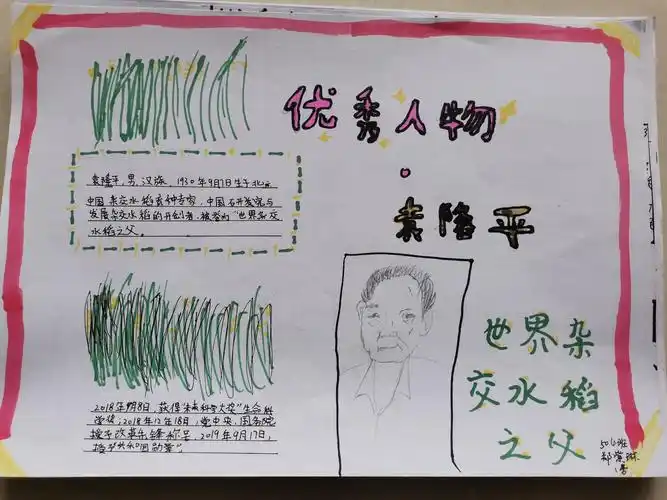 优秀人物
·
袁隆平
袁隆平，男，汉族，1930年9月7日生于北京
中国杂交水稻育种专家，中国研究与
发展杂交水稻的开创者，被誉为"世界杂交
水稻之父。
世界杂
交水稻
之父
2018年9月8日，获得未来科学大奖"生命科
学奖，2018年12月18日，党中央，国务院
授予改革先锋称号，2019年9月17日，
授予共和国勋章"
501班
郑紫琳